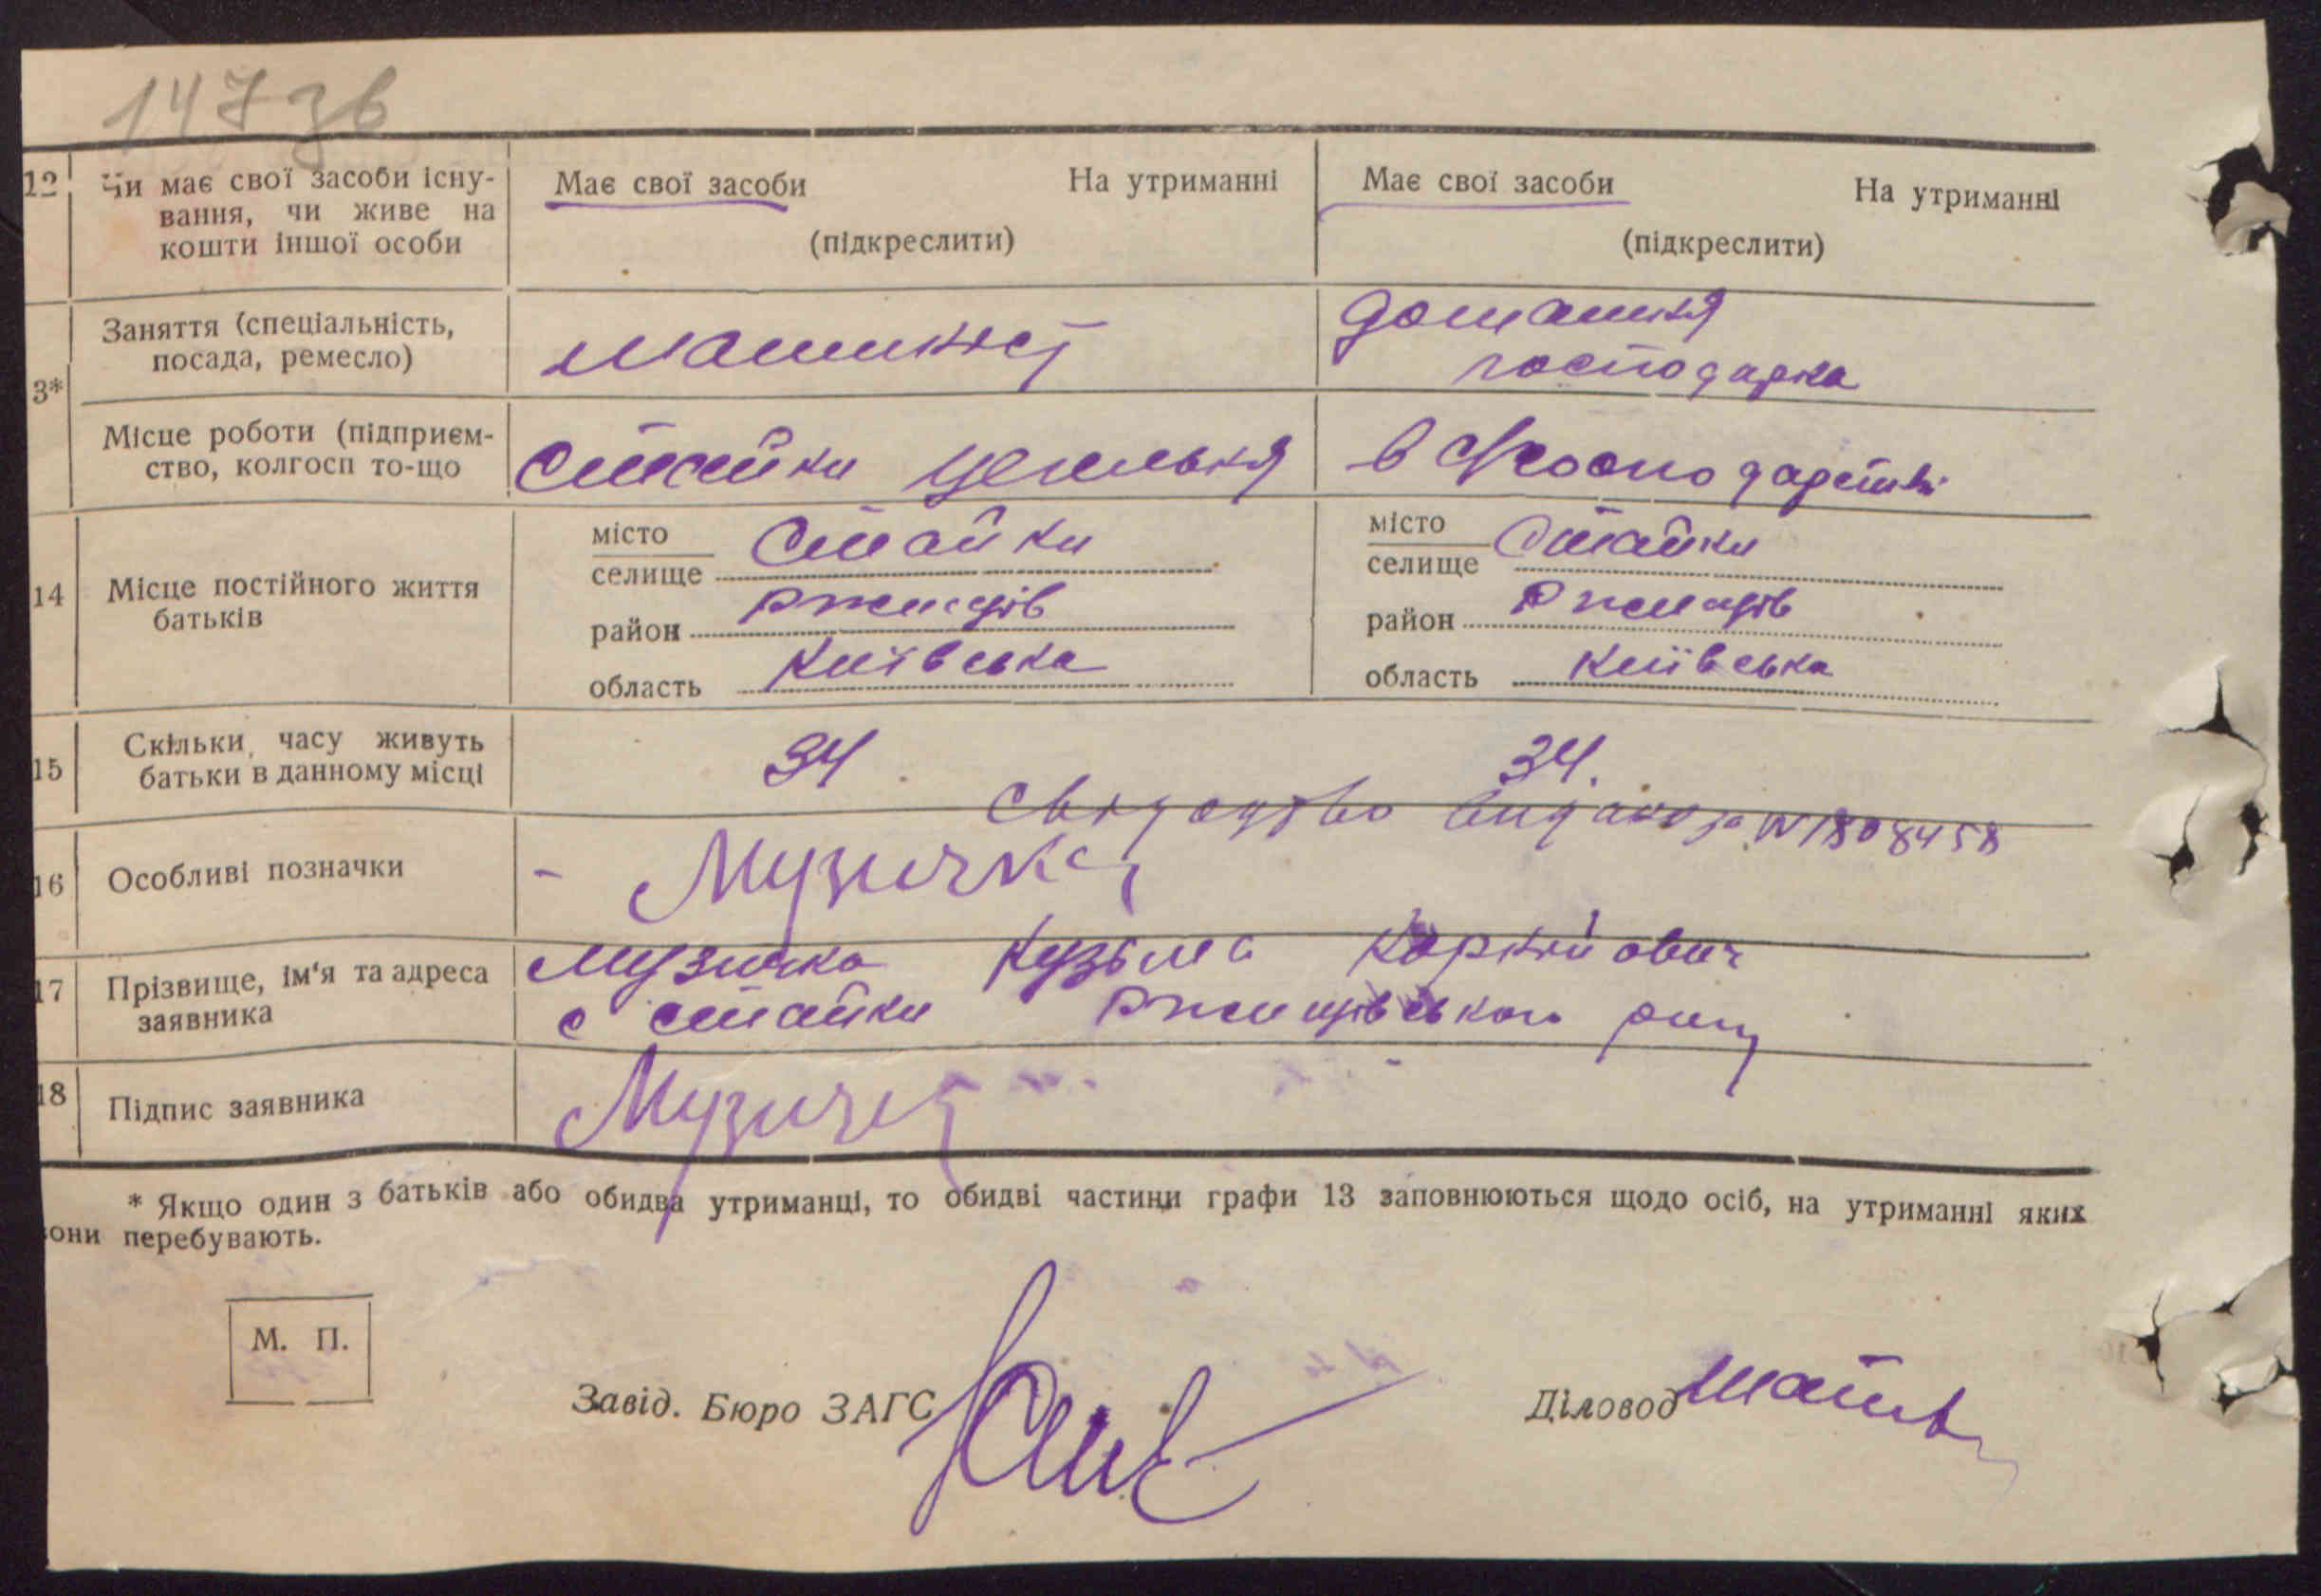 147 зв
12 Чи має свої засоби існу-
вання, чи живе на
кошти іншої особи
Має свої засоби На утриманні
(підкреслити)
Має свої засоби На утриманні
(підкреслити)
3*
Заняття (спеціальність,
посада, ремесло)
машиніст
домашня
господарка
Місце роботи (підприєм-
ство, колгосп то-що
Стайки цегельня
в господарстві
14 Місце постійного життя
батьків
місто
селище Стайки
район Ржищів
область Київська
місто
селище Стайки
район Ржищів
область Київська
15 Скільки часу живуть
батьки в данному місці
34
34.
16 Особливі позначки
Свідоцтво видано за № 1808458
- Музичка
17 Прізвище, ім'я та адреса
заявника
Музичка Кузьма Корнійович
с Стайки Ржищівського р-ну
18 Підпис заявника
Музичка
* Якщо один з батьків або обидва утриманці, то обидві частини графи 13 заповнюються щодо осіб, на утриманні яких
вони перебувають.
М. П.
Завід. Бюро ЗАГС
Діловод